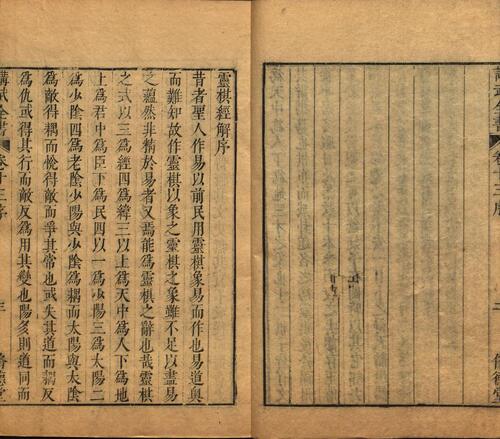 靈棋經解序
昔者聖人作易以前民用靈棋象易而作也易道奧
而難知故作靈棋以象之靈棋之象雖不足以盡易
之蘊然非精於易者又焉能爲靈棋之辭也哉靈棋
之式以三爲經四爲緯三以上爲天中爲人下爲地
上爲君中爲臣下爲民四以一爲少陽三爲太陽二
爲少陰四爲老陰少陽與少陰爲耦而太陽與太陰
爲敵得耦而悅得敵而爭其常也或失其道而耦反
爲仇或得其行而敵反爲用其變也陽多則道同而
講武全書 卷十三序 三 德堂